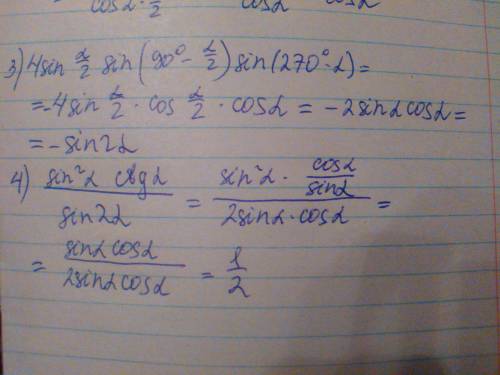 cosα·α/2 cosα cosα
3) 4sin α/2 sin(90° - α/2) sin(270° - α) =
= -4sin α/2 · cos α/2 · cosα = -2sinα cosα =
= -sin2α
4) sin²α ctgα / sin2α = sin²α · cosα/sinα / 2sinα·cosα =
= sinα cosα / 2sinα cosα = 1/2